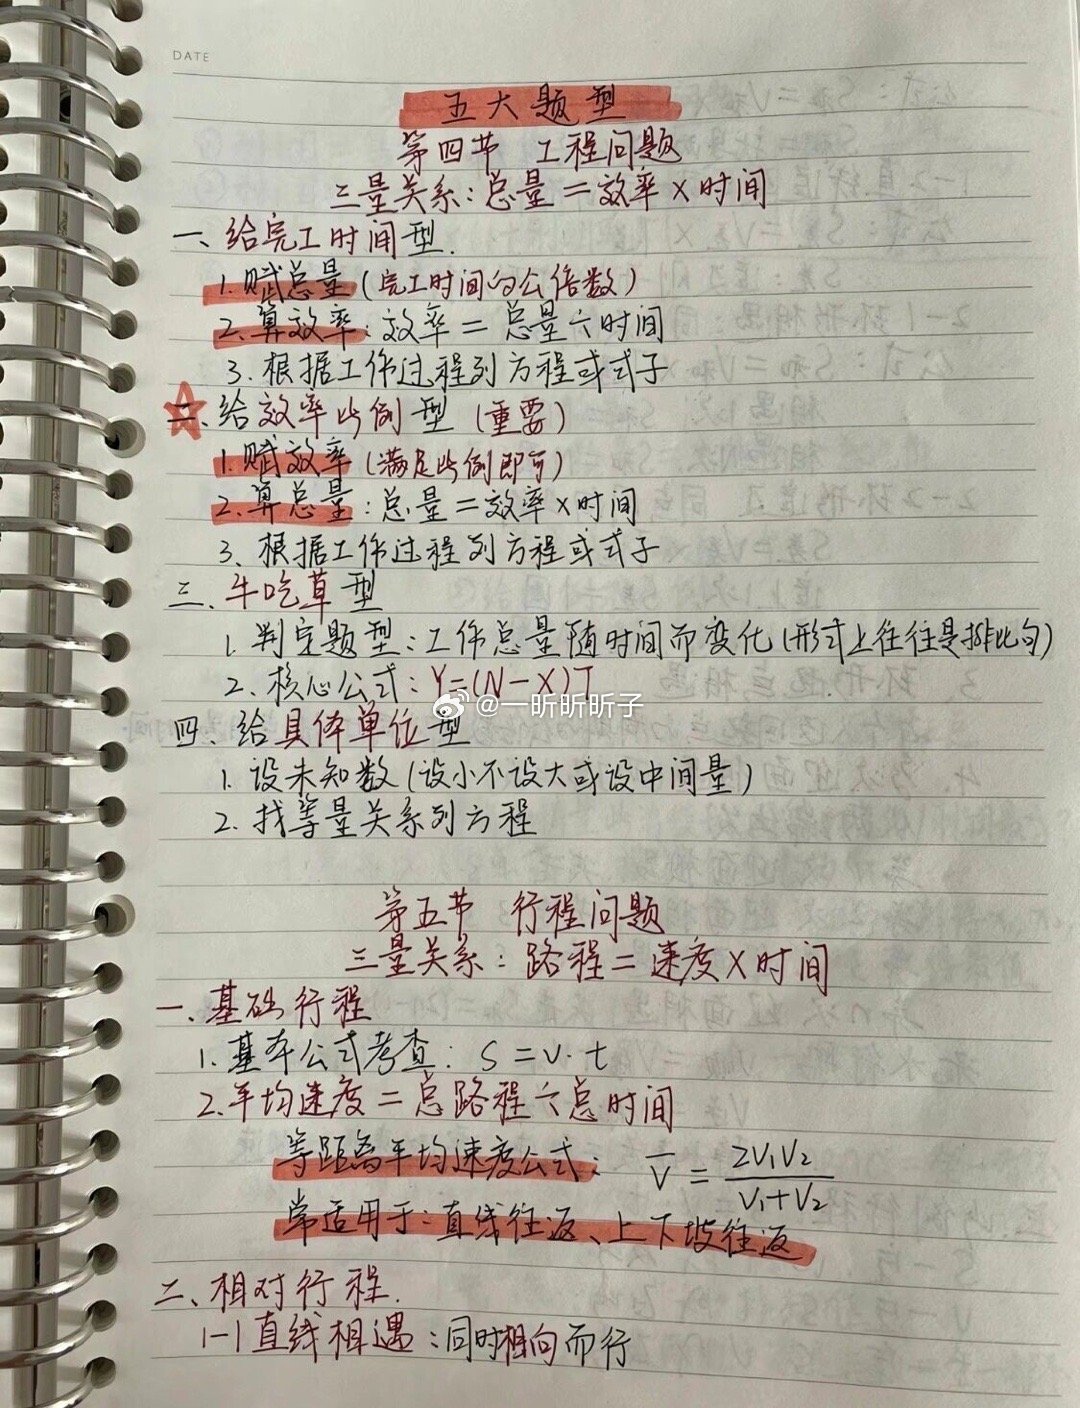 DATE
五大题型
第四节 工程问题
三量关系:总量=效率×时间
一、给完工时间型.
1.赋总量(完工时间的公倍数)
2.算效率:效率=总量÷时间
3.根据工作过程列方程或式子
二、给效率比例型(重要)
1.赋效率(满足比例即可)
2.算总量:总量=效率×时间
3.根据工作过程列方程或式子
三、牛吃草型
1.判定题型:工作总量随时间而变化(形式上往往是排比句)
2.核心公式:Y=(N-X)T
@一昕昕昕子
四、给具体单位型
1.设未知数(设小不设大或设中间量)
2.找等量关系列方程
第五节 行程问题
三量关系:路程=速度×时间
一、基础行程
1.基本公式考查:S=v·t
2.平均速度=总路程÷总时间
等距离平均速度公式: V̄=2V₁V₂/(V₁+V₂)
常适用于:直线往返、上下坡往返
二、相对行程.
1-1直线相遇:同时相向而行